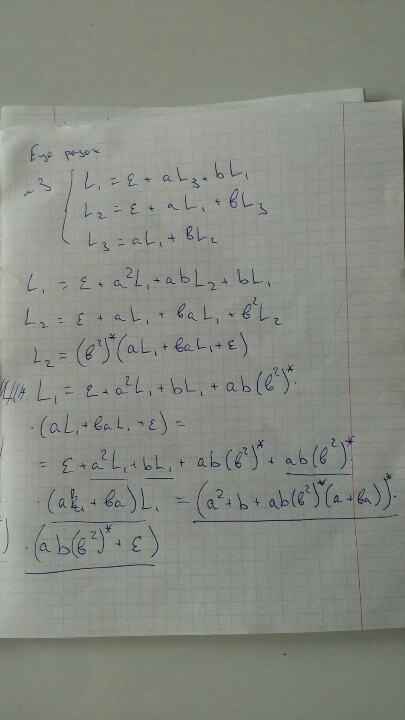 Еще разок
№3 { L₁ = ε + aL₃ + bL₁
L₂ = ε + aL₁ + вL₃
L₃ = aL₁ + вL₂
L₁ = ε + a²L₁ + abL₂ + bL₁
L₂ = ε + aL₁ + вaL₁ + в²L₂
L₂ = (в²)*(aL₁ + вaL₁ + ε)
L₁ = ε + a²L₁ + bL₁ + ab(в²)*·
·(aL₁ + вaL₁ + ε) =
= ε + a²L₁ + bL₁ + ab(в²)* + ab(в²)*·
·(a + вa)L₁ = (a² + b + ab(в²)*(a + вa))*·
·(ab(в²)* + ε)